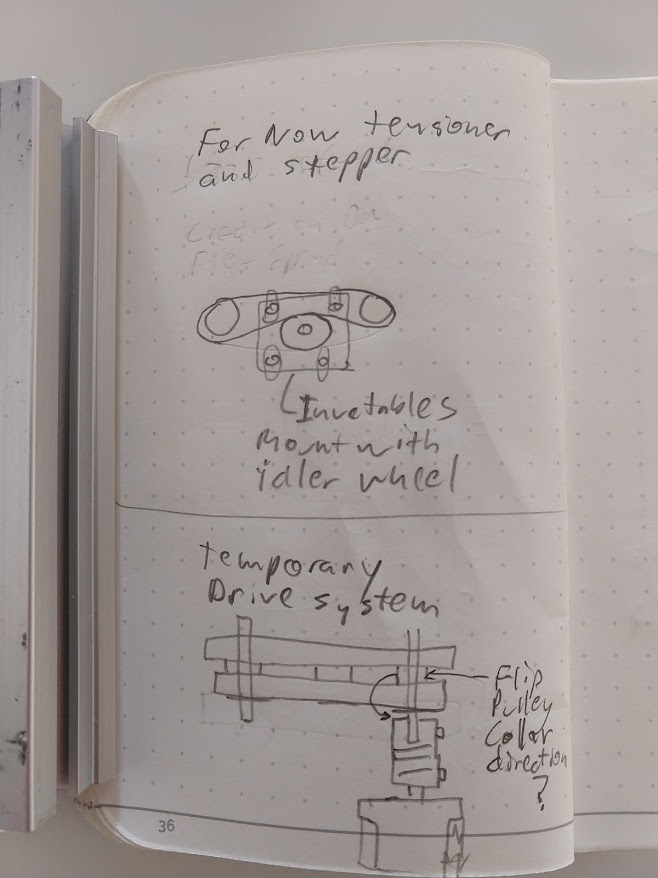 For Now tensioner
and stepper
Invetables
Mount with
idler wheel
temporary
Drive system
Flip
Pulley
Collar
direction
?
36